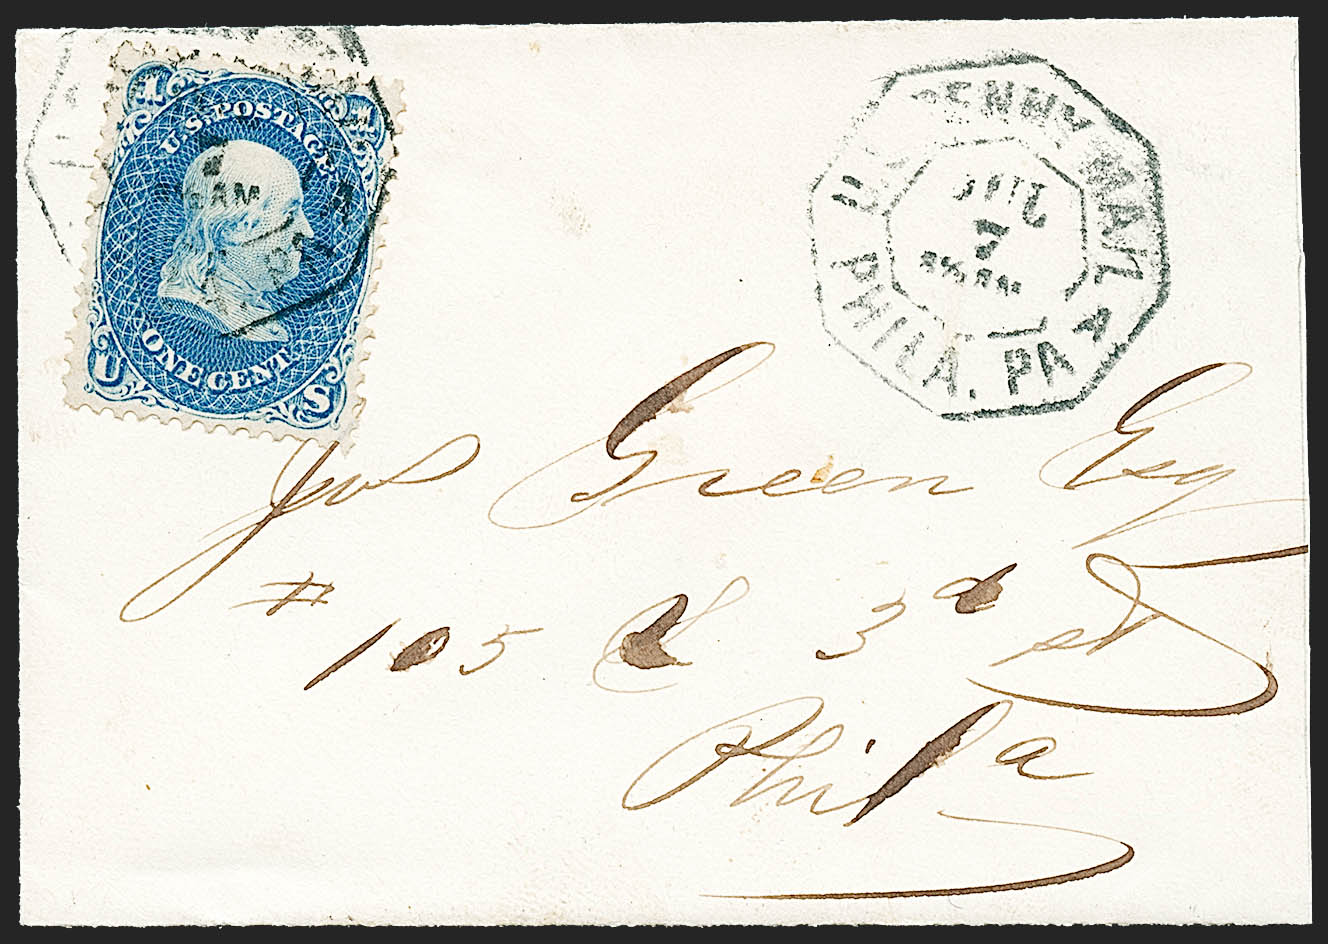 U.S. POSTAGE
1 1
ONE CENT
U S
AM
U.S. PENNY MAIL
PHILA. PA
Jos Green Esq
# 105 S 3d st
Phila